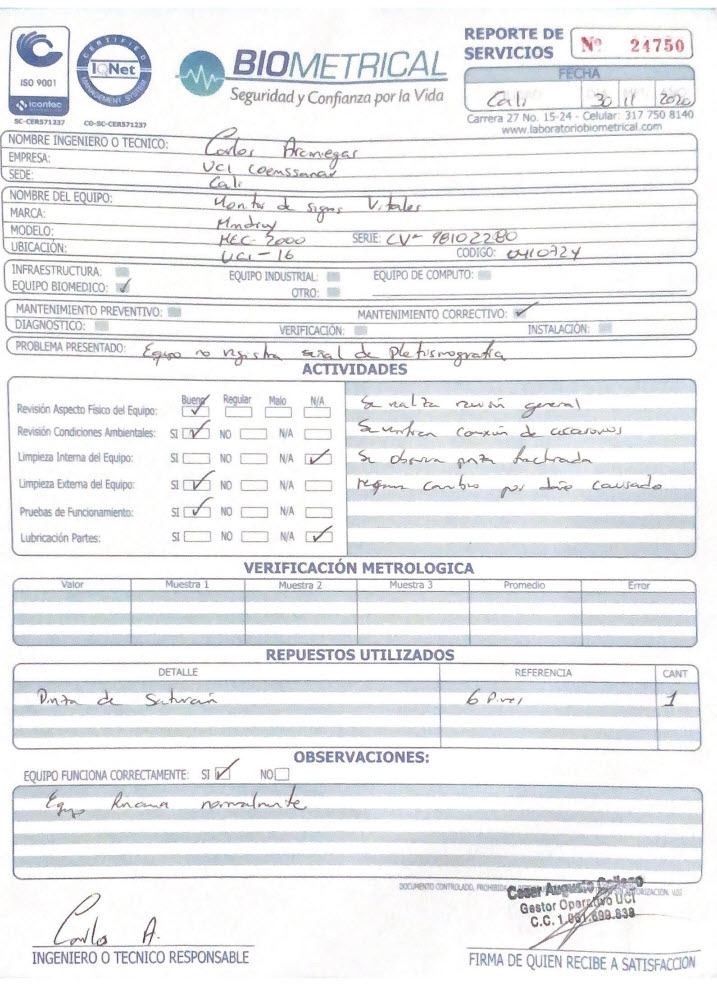 ISO 9001
icontec
SC-CER571237
CERTIFIED
IQNet
MANAGEMENT SYSTEM
CO-SC-CER571237
BIOMETRICAL
Seguridad y Confianza por la Vida
REPORTE DE SERVICIOS Nº 24750
FECHA
Cali 30 11 2020
Carrera 27 No. 15-24 - Celular: 317 750 8140
www.laboratoriobiometrical.com
NOMBRE INGENIERO O TECNICO: Carlos Arciniegas
EMPRESA: UCI Coemssanar
SEDE: Cali
NOMBRE DEL EQUIPO: Monitor de signos Vitales
MARCA: Mindray
MODELO: MEC-2000 SERIE: CV-98102280
UBICACIÓN: UCI-16 CODIGO: 0410724
INFRAESTRUCTURA: EQUIPO INDUSTRIAL: EQUIPO DE COMPUTO:
EQUIPO BIOMEDICO: ✓ OTRO:
MANTENIMIENTO PREVENTIVO: MANTENIMIENTO CORRECTIVO: ✓
DIAGNOSTICO: VERIFICACIÓN: INSTALACIÓN:
PROBLEMA PRESENTADO: Equipo no registra señal de Pletismografia
ACTIVIDADES
Bueno Regular Malo N/A
Revisión Aspecto Físico del Equipo: ✓
Revisión Condiciones Ambientales: SI ✓ NO N/A
Limpieza Interna del Equipo: SI NO N/A ✓
Limpieza Externa del Equipo: SI ✓ NO N/A
Pruebas de Funcionamiento: SI ✓ NO N/A
Lubricación Partes: SI NO N/A ✓
Se realiza revisión general
Se verifican conexión de accesorios
Se observa pinza fracturada
requiere cambio por daño causado
VERIFICACIÓN METROLOGICA
Valor Muestra 1 Muestra 2 Muestra 3 Promedio Error
REPUESTOS UTILIZADOS
DETALLE REFERENCIA CANT
Pinza de Saturación 6 Pines 1
OBSERVACIONES:
EQUIPO FUNCIONA CORRECTAMENTE: SI ✓ NO
Equipo funciona normalmente
DOCUMENTO CONTROLADO, PROHIBIDA AUTORIZACION.
Cesar Augusto Gallego
Gestor Operativo UCI
C.C. 1.061.699.838
Carlos A.
INGENIERO O TECNICO RESPONSABLE
FIRMA DE QUIEN RECIBE A SATISFACCION